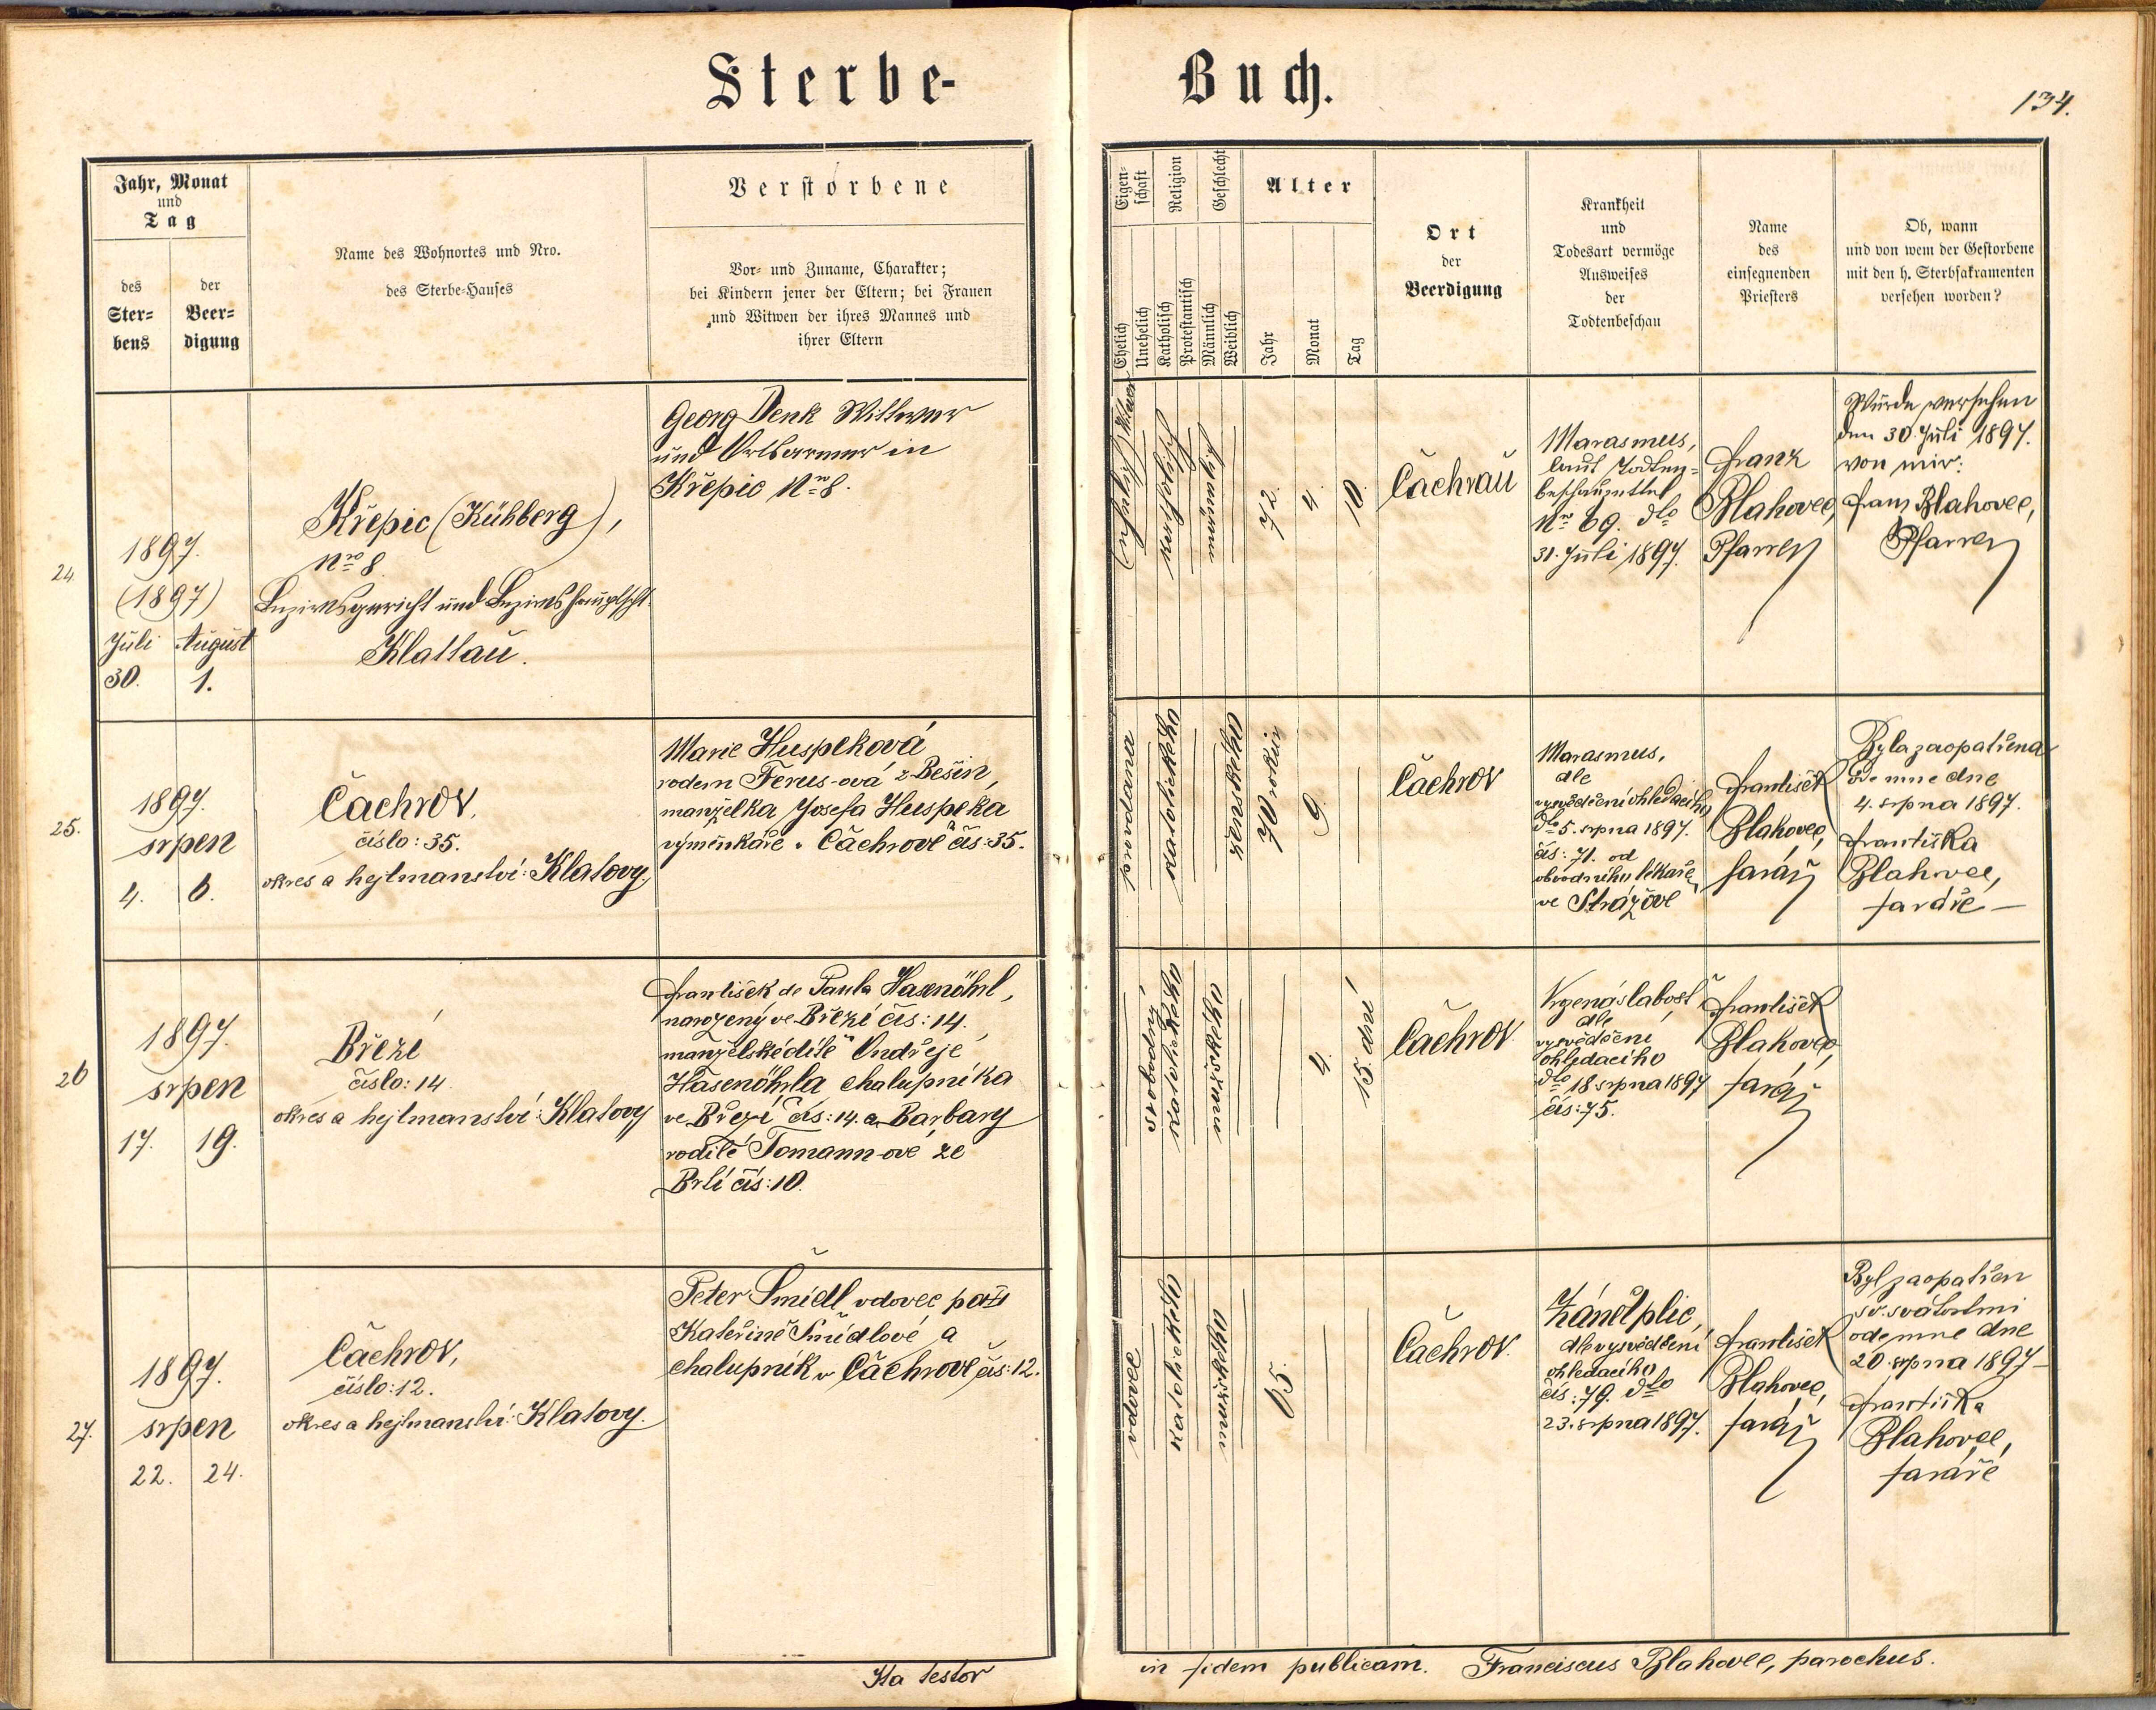 Sterbe-
Buch.
134.
Jahr, Monat
und
Tag
des
Ster-
bens
der
Beer-
digung
Name des Wohnortes und Nro.
des Sterbe-Hauses
Verstorbene
Vor- und Zuname, Charakter;
bei Kindern jener der Eltern; bei Frauen
und Witwen der ihres Mannes und
ihrer Eltern
Eigen-
schaft
Religion
Geschlecht
Alter
Ehelich
Unehelich
Katholisch
Protestantisch
Männlich
Weiblich
Jahr
Monat
Tag
Ort
der
Beerdigung
Krankheit
und
Todesart vermöge
Ausweises
der
Todtenbeschau
Name
des
einsegnenden
Priesters
Ob, wann
und von wem der Gestorbene
mit den h. Sterbsakramenten
versehen worden?
24.
1897.
(1897)
Juli August
30. 1.
Křepic (Kühberg),
Nro 8
Bezirksgericht und Bezirkshauptscht.
Klattau.
Georg Denk Wittwer
und Ortsarmer in
Křepic Nro 8.
katholisch
72.
4.
10.
Čachrau
Marasmus,
laut Todten-
beschauzettel
Nro 69. dto
31. Juli 1897.
Franz
Blahovec,
Pfarrer
Wurde versehen
den 30. Juli 1897.
von mir:
Franz Blahovec,
Pfarrer
25.
1897.
srpen
4. 6.
Čachrov,
číslo: 35.
okres a hejtmanství: Klatovy.
Marie Huspeková
rodem Ferus-ová z Běšin,
manželka Josefa Huspeka
výměnkáře v Čachrově čís: 35.
provdaná
katolického
ženského
70 roků
9.
Čachrov
Marasmus,
dle
vysvědčení ohledacího
dto 5. srpna 1897.
čís: 71. od
obvodního lékaře
ve Strážově
František
Blahovec,
farář
Byla zaopatřena
ode mne dne
4. srpna 1897.
Františka
Blahovec,
faráře
26
1897.
srpen
17. 19.
Březí
číslo: 14.
okres a hejtmanství: Klatovy
František de Paula Hasenöhrl,
narozený ve Březí čís: 14.
manželské dítě Ondřeje
Hasenöhrla chalupníka
ve Březí čís: 14. a Barbary
rodilé Tomann-ové ze
Brtí čís: 10.
svobodný
katolického
mužského
4.
15. dní
Čachrov
Vrozená slabosť
dle
vysvědčení
ohledacího
dto 18 srpna 1897
čís: 75.
František
Blahovec,
farář
27.
1897.
srpen
22. 24.
Čachrov,
číslo: 12.
okres a hejtmanství: Klatovy.
Peter Šmídl, vdovec po
Kateřině Šmídlové a
chalupník v Čachrově čís: 12.
vdovec
katolického
mužského
65.
Čachrov.
Zánět plic,
dle vysvědčení
ohledacího
čís: 79. dto
23. srpna 1897.
František
Blahovec,
farář
Byl zaopatřen
sv. svátostmi
ode mne dne
20. srpna 1897
Františka
Blahovec,
faráře
Ita testor
in fidem publicam. Franciscus Blahovec, parochus.